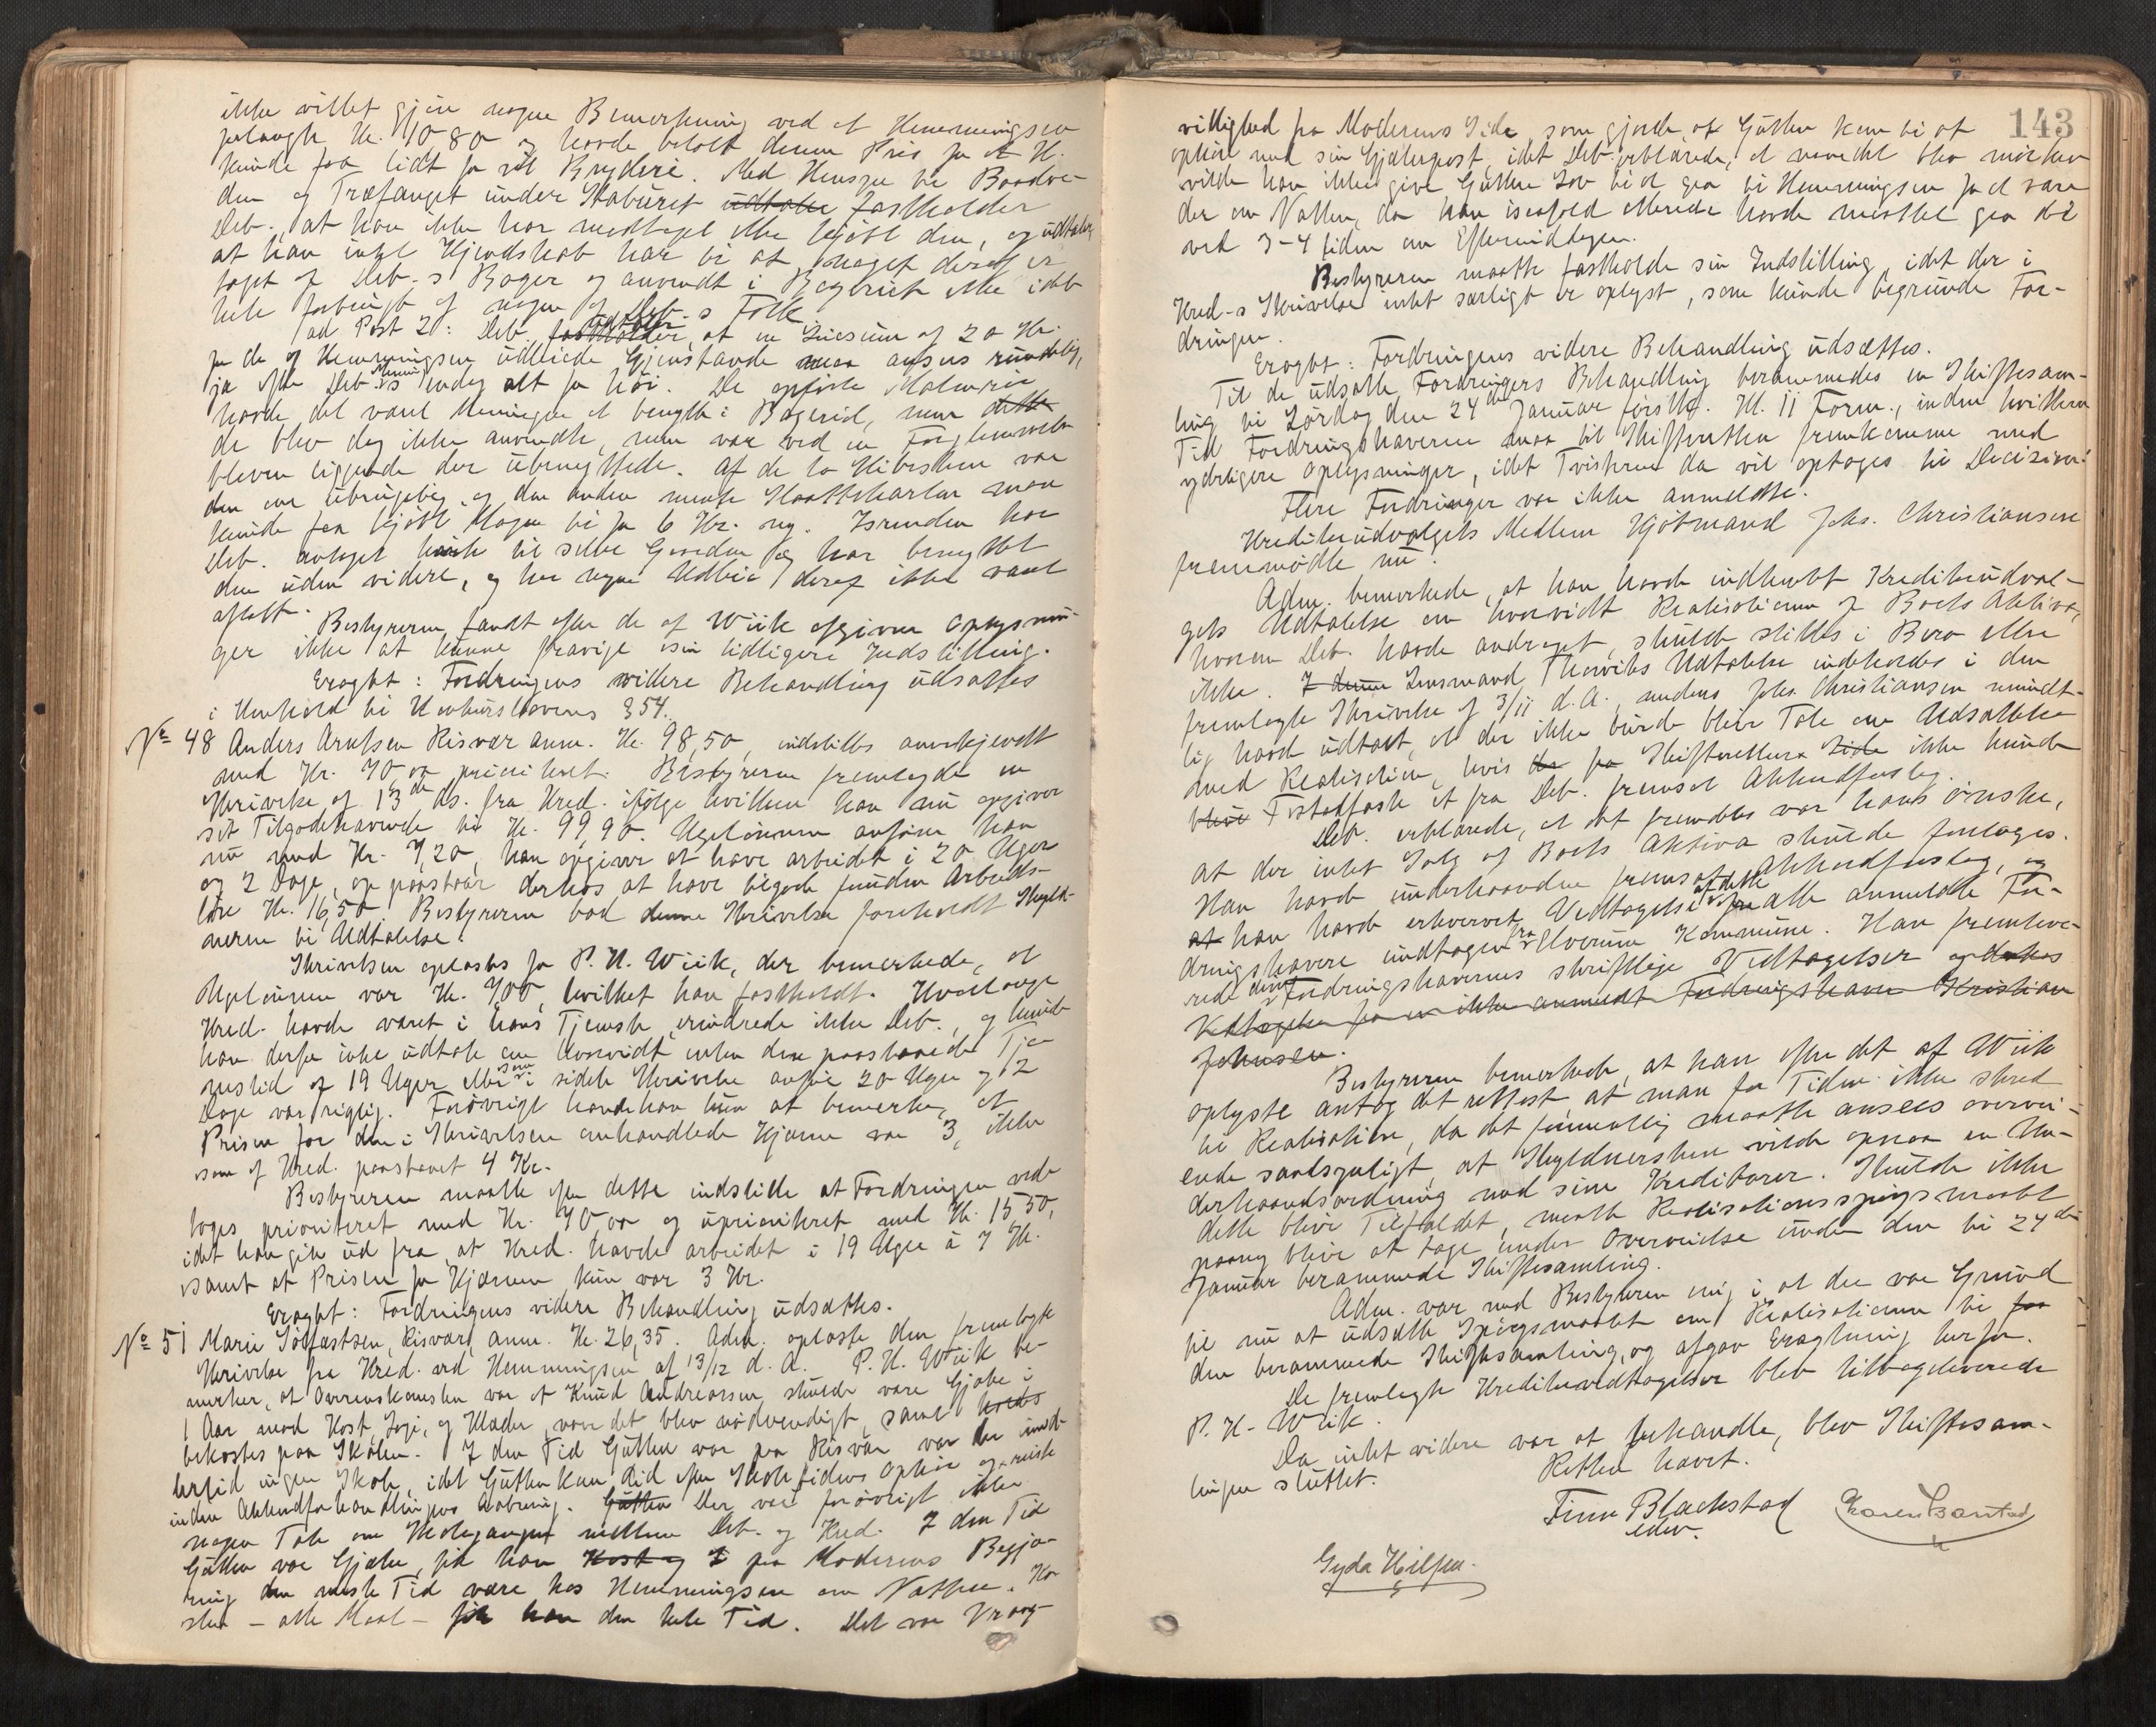 ikke villet gjøre nogen Bemerkning ved at Hemmingsen
forlangte Kr. 10,80 og havde betalt denne Pris for at H.
kunde faa lidt for sit Bryderi. Med Hensyn til Baadve-
den og Træfanget under Staburet udtaler fastholder
Deb., at han ikke har modtaget eller kjøbt den, og udtaler
at han intet Kjendskab har til at noget deraf er
taget af Deb.s Bager og anvendt i Bageriet eller idet
hele forbrugt af nogen af Deb.s Folk
ad Post 2: Deb. fastholder udtaler, at en Suesum af 20 Kr.
for de af Hemmingsen udleiede Gjenstande maa ansees rundelig,
ja efter Deb.s Mening endog alt for høi. De opførte Malerier
havde det været Meningen at benytte i Bageriet, men dette
de blev dog ikke anvendte, men var ved en Forglemmelse
bleven liggende der ubenyttede. Af de to
den ene ubrugelig, og den anden mente man
kunde faa kjøbt Magen til for 6 Kr. ny. Isrenden har
Deb. antaget hørte til selve Gaarden og har benyttet
den uden videre, og har nogen Udleie deraf ikke været
aftalt.
Bestyreren fandt efter de af Wiik afgivne Oplysnin-
ger ikke at kunne fravige sin tidligere Indstilling.
Eragtet: Fordringens videre Behandling udsættes
i Henhold til Konkurslovens § 54.
No 48 Anders Arntsen Risvær anm. Kr. 98,50, indstilles anerkjendt
med Kr. 70,00 prioritert. Bestyreren fremlagde en
Skrivelse af 13de ds. fra Kred. ifølge hvilken han nu opgiver
sit Tilgodehavende til Kr. 99,90. Ugelønnen anføres han
nu med Kr. 7,20, han opgiver at have arbeidet i 20 Uger
og 2 Dage, og paastaar derhos at have tilgode Arbeids-
løn Kr. 16,50. Bestyreren bad denne Skrivelse foreholdt Skyld-
neren til Udtalelse.
Skrivelsen oplæstes for P. H. Wiik, der bemerkede, at
Ugelønnen var Kr. 7,00, hvilket han fastholdt. Hvorlænge
Kred. havde været i hans Tjeneste erindrede ikke Deb., og kunde
han derfor ikke udtale om hvorvidt enten den paastaaede Tje-
nestid af 19 Uger eller som i sidste Skrivelse anført 20 Uger og 2
Dage var rigtig. Forøvrigt havde han kun at bemerke, at
Prisen for den i Skrivelsen omhandlede Kjærne var 3, ikke
som af Kred. paastaaet 4 Kr.
Bestyreren maatte efter dette indstille at Fordringen ved-
toges prioriteret med Kr. 70,00 og uprioriteret med Kr. 15,50,
idet han gik ud fra, at Kred. havde arbeidet i 19 Uger à 7 Kr.
samt at Prisen for Kjærnen kun var 3 Kr.
Eragtet: Fordringens videre Behandling udsættes.
No 51 Marie Solfastsen, Risvær, anm. Kr. 26,35. Adm. oplæste den fremlagte
Skrivelse fra Kred. ved Hemmingsen af 13/12 d. A. P. H. Wiik be-
merker, at Overenskomsten var at Knud Andreassen skulde være Gjæter i
1 Aar mod Kost, Losji, og Klæder, naar det blev nødvendigt, samt
bekostes paa Skolen. I den Tid Gutten var paa Risvær var der imid-
lertid ingen Skole, idet Gutten kom did efter Skoletidens Ophør og reiste
inden Akkordforhandlingens Aabning. Gutten Der var forøvrigt ikke
nogen Tale om Skolegangen mellem Deb. og Kred. I den Tid
Gutten var Gjæter, fik han Kost og L paa Moderens Begjæ-
ring den meste Tid være hos Hemmingsen om Natten. Ko-
sten – alle Maal – fik han den hele Tid. Det var Vrang-
143
villighed fra Moderens Side som gjorde at Gutten kom til at
ophøre med sin Gjæterpost, idet Deb. erklærede, at naar det blev mørkere
vilde han ikke give Gutten Lov til at gaa til Hemmingsen for at være
der om Natten, da han isaafald allerede havde maattet gaa did
ved 3-4 tiden om Eftermiddagen.
Bestyreren maatte fastholde sin Indstilling, idet der i
Kred.s Skrivelse intet særligt er oplyst, som kunde begrunde For-
dringen.
Eragtet: Fordringens videre Behandling udsættes.
Til de udsatte Fordringers Behandling berammedes en Skiftesam-
ling til Lørdag den 24de Januar førstk. Kl. 11 Form., inden hvilken
Tid Fordringshaverne maa til Skifteretten fremkomme med
yderligere Oplysninger, idet Tvisterne da vil optages til Decision.
Flere Fordringer var ikke anmeldte.
Kreditorudvalgets Medlem Kjøbmand Johs. Christiansen
fremmødte nu.
Adm. bemerkede, at han havde indhentet Kreditorudval-
gets Udtalelse om hvorvidt Realisationen af Boets Aktiva,
hvorom Deb. havde andraget, skulde stilles i Bero eller
ikke. I denne Lensmand Udtalelse indeholdes i den
fremlagte Skrivelse af 3/11 d. A., medens Johs. Christiansen mundt-
lig havde udtalt, at der ikke burde blive Tale om Udsættelse
med Realisation, hvis der fra Skifterettens Side ikke kunde
blive Tvstadfæste et fra Deb. fremsat Akkordforslag.
Deb. erklærede, at det fremdeles var hans Ønske,
at der intet Salg af Boets Aktiva skulde foretages.
Han havde underhaanden fremsat Akkordforslag, og
at han havde erhvervet Vedtagelse af dette fra alle anmeldte For-
dringshavere undtagen fra Elverum Kommune. Han fremleve-
rede disse Fordringshaveres skriftlige Vedtagelser og derhos
Vedtagelse fra en ikke anmeldt Fordringshaver Kristian
Johnsen.
Bestyreren bemerkede, at han efter det af Wiik
oplyste antog det rettest at man for Tiden ikke skred
til Realisation, da det formentlig maatte ansees overvei-
ende sandsynligt, at Skyldneren vilde opnaa en Un-
derhaandsordning med sine Kreditorer. Skulde ikke
dette blive Tilfældet, maatte Realisationsspørgsmaalet
paany blive at tage under Overveielse inden den til 24de
Januar berammede Skiftesamling.
Adm. var med Bestyreren enig i at der var Grund
til nu at udsætte Spørgsmaalet om Realisationen til
den berammede Skiftesamling, og afgav Eragtning herfor.
De fremlagte Kreditorvedtagelser blev tilbageleverede
P. H. Wiik.
Da intet videre var at forhandle, blev Skiftesam-
lingen sluttet.
Retten hævet.
Finn Blackstad
edsv.
Gyda Nilsen.